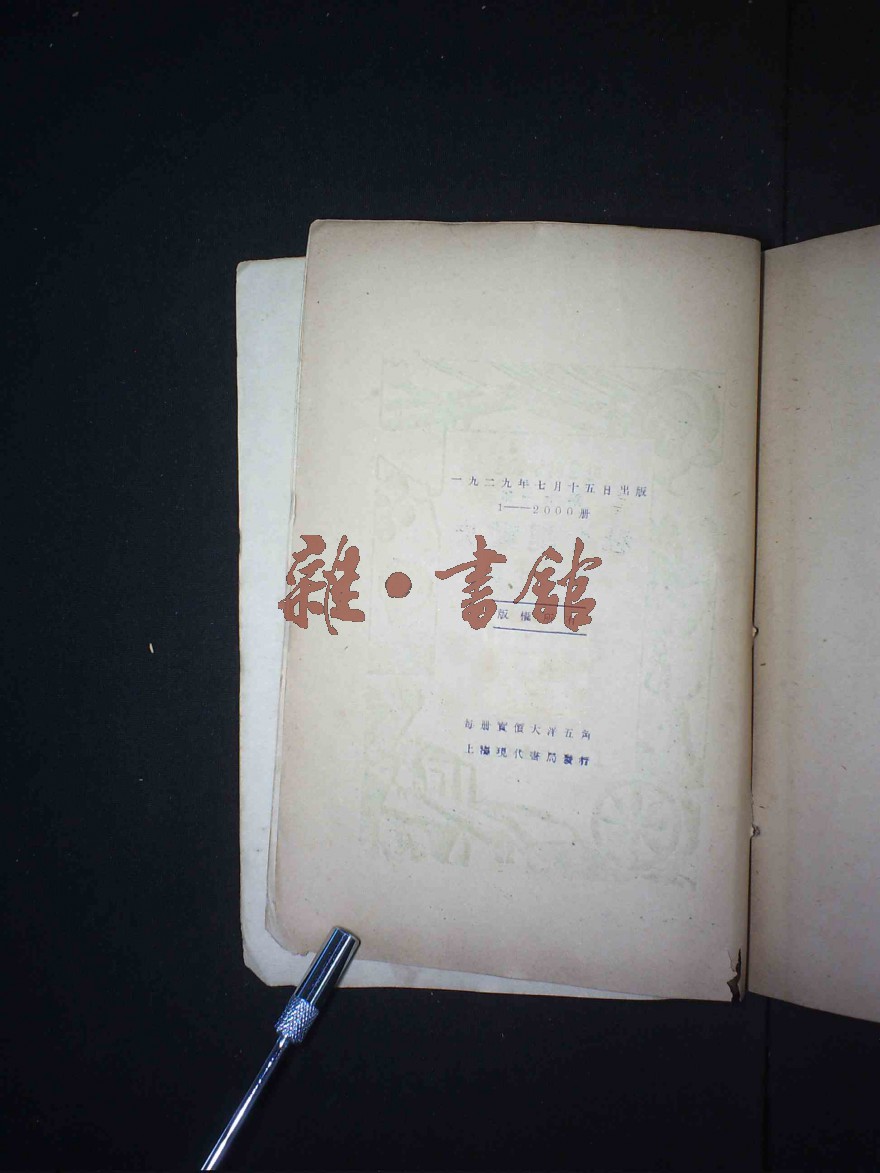 一九二九年七月十五日出版
1——2000册
雜·書館
版權
每册實價大洋五角
上海現代書局發行